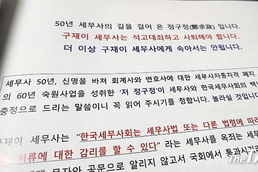 50년 세무사의 길을 걸어 온 정구정(鄭求政) 입니다.
구재이 세무사는 석고대죄하고 사퇴해야 합니다.
더 이상 구재이 세무사에게 속아서는 안됩니다.
세무사 50년, 신명을 바쳐 회계사와 변호사에 대한 세무사자동자격 폐지
의 60년 숙원사업을 성취한 '저 정구정'이 세무사와 한국세무사회의 백년
충정으로 드리는 말씀이니 꼭 읽어 주시기를 청합니다. 놀라실 것입니다.
이 세무사는 "한국세무사회는 세무사법 또는 다른 법령에 따라
서류에 대한 감리를 할 수 있다" 라는 세무사를 옥죄는 세무
문자와 공문으로 알리지 않고서 국회에서 통과시키